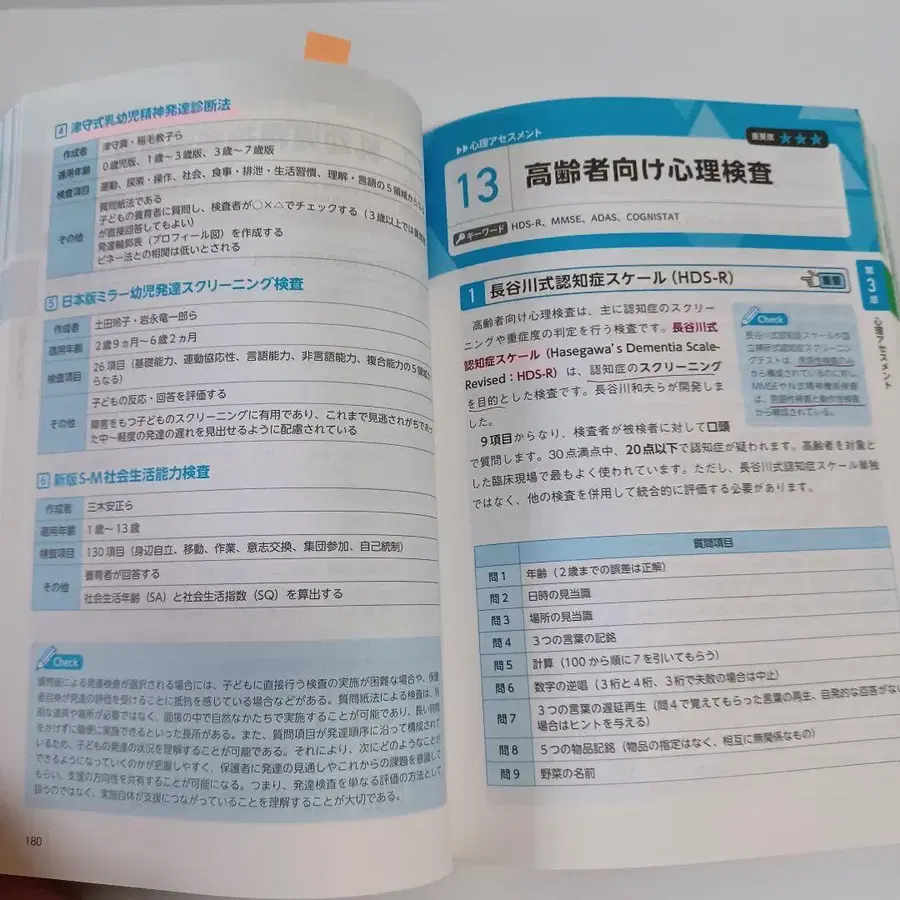 4 津守式乳幼児精神発達診断法
作成者 津守真・稲毛教子ら
適用年齢 0歳児版、1歳～3歳版、3歳～7歳版
検査項目 運動、探索・操作、社会、食事・排泄・生活習慣、理解・言語の5領域から
その他 質問紙法である
子どもの養育者に質問し、検査者が○×△でチェックする（3歳以上では
が直接回答してもよい）
発達輪郭表（プロフィール図）を作成する
ビネー法との相関は低いとされる
5 日本版ミラー幼児発達スクリーニング検査
作成者 土田玲子・岩永竜一郎ら
適用年齢 2歳9ヵ月～6歳2ヵ月
検査項目 26項目（基礎能力、運動協応性、言語能力、非言語能力、複合能力の5領域
らなる）
その他 子どもの反応・回答を評価する
障害をもつ子どものスクリーニングに有用であり、これまで見逃されがちであっ
た中～軽度の発達の遅れを見出せるように配慮されている
6 新版S-M社会生活能力検査
作成者 三木安正ら
適用年齢 1歳～13歳
検査項目 130項目（身辺自立、移動、作業、意志交換、集団参加、自己統制）
その他 養育者が回答する
社会生活年齢（SA）と社会生活指数（SQ）を算出する
Check
質問紙による発達検査が選択される場合には、子どもに直接行う検査の実施が困難な場合や、保護
者自身が発達の評価を受けることに抵抗を感じている場合などがある。質問紙法による検査は、特
別な道具や場所が必要ではなく、面接の中で自然なかたちで実施することが可能であり、長い時間
をかけずに簡便に実施できるといった長所がある。また、質問項目が発達順序に沿って構成されて
いるため、子どもの発達の状況を理解することが可能である。それにより、次にどのようなことが
できるようになっていくのかが把握しやすく、保護者に発達の見通しやこれからの課題を意識して
もらい、支援の方向性を共有することが可能になる。つまり、発達検査を単なる評価の方法として
扱うのではなく、実施自体が支援につながっていることを理解することが大切である。
180
心理アセスメント
重要度 ★★★
13 高齢者向け心理検査
キーワード HDS-R、MMSE、ADAS、COGNISTAT
1 長谷川式認知症スケール（HDS-R）
重要
高齢者向け心理検査は、主に認知症のスクリー
ニングや重症度の判定を行う検査です。長谷川式
認知症スケール（Hasegawa's Dementia Scale-
Revised：HDS-R）は、認知症のスクリーニング
を目的とした検査です。長谷川和夫らが開発しま
した。
9項目からなり、検査者が被検者に対して口頭
で質問します。30点満点中、20点以下で認知症が疑われます。高齢者を対象と
した臨床現場で最もよく使われています。ただし、長谷川式認知症スケール単独
ではなく、他の検査を併用して統合的に評価する必要があります。
Check
長谷川式認知症スケールや国
立精研式認知症スクリーニン
グテストは、言語性検査のみ
から構成されているのに対し、
MMSEやN式精神機能検査
は、言語性検査と動作性検査
から構成されている。
第3章
心理アセスメント
質問項目
問1 年齢（2歳までの誤差は正解）
問2 日時の見当識
問3 場所の見当識
問4 3つの言葉の記銘
問5 計算（100から順に7を引いてもらう）
問6 数字の逆唱（3桁と4桁、3桁で失敗の場合は中止）
問7 3つの言葉の遅延再生（問4で覚えてもらった言葉の再生、自発的な回答がない
場合はヒントを与える）
問8 5つの物品記銘（物品の指定はなく、相互に無関係なもの）
問9 野菜の名前